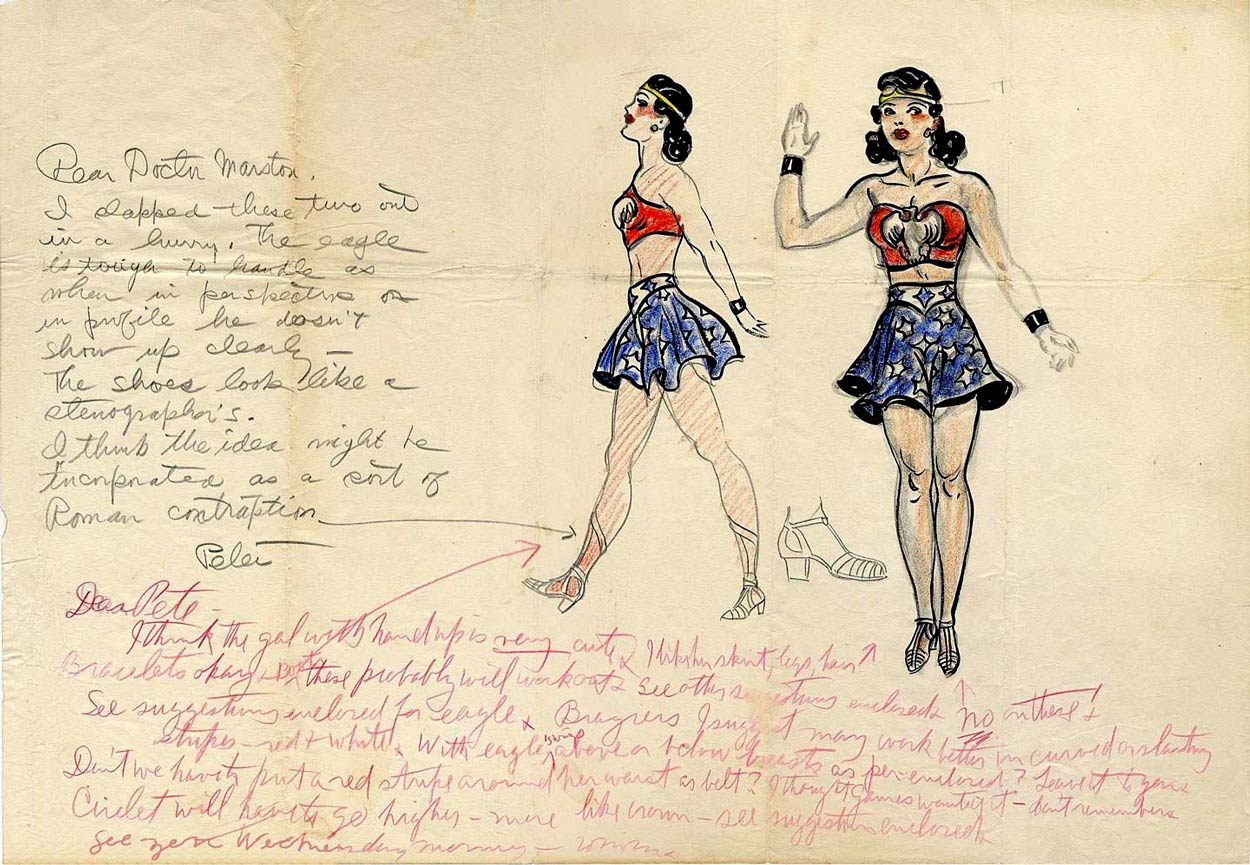 Dear Doctor Marston,
I slapped these two out
in a hurry. The eagle
is tough to handle as
when in perspective or
in profile he doesn't
show up clearly —
The shoes look like a
stenographer's.
I think the idea might be
incorporated as a sort of
Roman contraption
Peter
Dear Pete —
I think the gal with hand up is very cute. I like her skirt, legs, hair
Bracelets okay + Boots these probably will work out. See other suggestions enclosed. No on these!
See suggestions enclosed for eagle. I suggest may work better in curved or slanting
stripes — red + white. With eagle above or below breasts as per enclosed? Leave it to you.
Don't we have to put a red stripe around her waist as belt? I thought Gaines wanted it — don't remember.
Circlet will have to go higher — more like crown — see suggestions enclosed.
See you Wednesday morning —